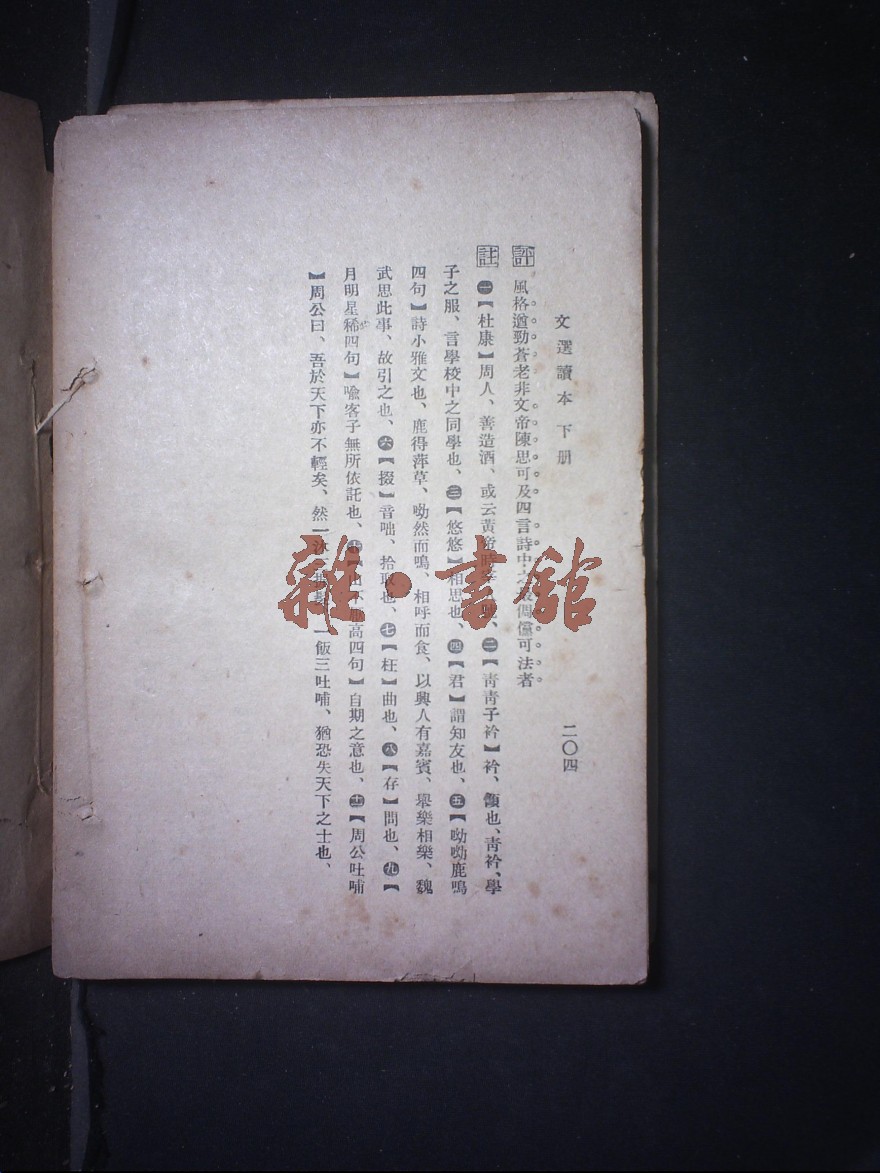 文選讀本 下册
二〇四
評 風格遒勁蒼老非文帝陳思可及四言詩中之最倜儻可法者
註 ㊀【杜康】周人、善造酒、或云黃帝時、㊁【青青子衿】衿、領也、青衿、學
子之服、言學校中之同學也、㊂【悠悠】相思也、㊃【君】謂知友也、㊄【呦呦鹿鳴
四句】詩小雅文也、鹿得萍草、呦然而鳴、相呼而食、以興人有嘉賓、舉樂相樂、魏
武思此事、故引之也、㊅【掇】音咄、拾取也、㊆【枉】曲也、㊇【存】問也、㊈【
月明星稀四句】喻客子無所依託也、㊉【山不厭高四句】自期之意也、⑪【周公吐哺
】周公曰、吾於天下亦不輕矣、然一沐三握髮、一飯三吐哺、猶恐失天下之士也、
雜·書館